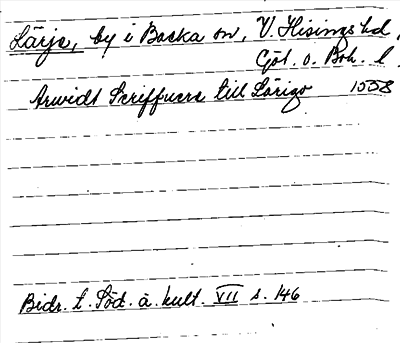 Lärje, by i Backa sn, V. Hisings hd,
Göt. o. Boh. l.
Arwidt Scriffuere till Lärigo 1558
Bidr. t. Göd. å. kult. VII s. 146